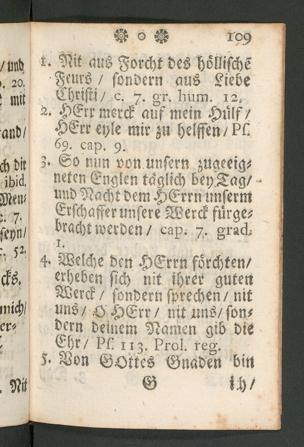 ❁ o ❁ 109
1. Nit aus Forcht des höllischẽ
Feurs / sondern aus Liebe
Christi / c. 7. gr. hum. 12.
2. HErr merck auf mein Hülf /
HErr eyle mir zu helffen / Ps.
69. cap. 9.
3. So nun von unsern zugeeig-
neten Englen täglich bey Tag /
und Nacht dem HErrn unserm
Erschaffer unsere Werck fürge-
bracht werden / cap. 7. grad.
1.
4. Welche den HErrn förchten /
erheben sich nit ihrer guten
Werck / sondern sprechen / nit
uns / O HErr / nit uns / son-
dern deinem Namen gib die
Ehr / Ps. 113. Prol. reg.
5. Von GOttes Gnaden bin
G ich /
/ und
p. 20.
t mit
rand /
ch die
ibid.
Men-
c. 7.
seyn /
f. 52.
cks.
mich /
er-
Nit